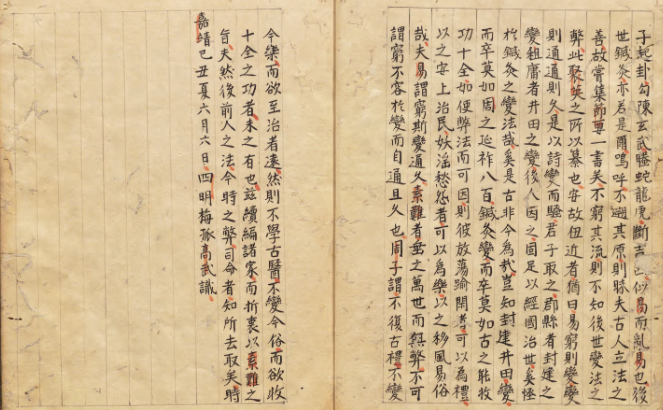 子起卦勾陳玄武螣蛇龍虎斷吉凶似易而亂易也後
世鍼灸亦若是爾嗚呼不遡其原則昧夫古人立法之
善故嘗集節要一書矣不窮其流則不知後世變法之
弊此聚英之所以纂也安故狃近者猶曰易窮則變變
則通通則久是以詩變而騷君子取之郡縣者封建之
變租庸者井田之變後人因之固足以經國治世矣恠
於鍼灸之變法哉奚是古非今為哉豈知封建井田變
而卒莫如周之延祚八百鍼灸變而卒莫如古之收
功十全如使弊法而可因則彼放蕩踰閑者可以為禮
以之安上治民妖滛愁怨者可以為樂以之移風易俗
哉夫易謂窮斯變通久素難者垂之萬世而無弊不可
謂窮不容於變而自通且久也周子謂不復古禮不變
今樂而欲至治者遠然則不學古醫不變今俗而欲收
十全之功者未之有也茲續編諸家而折衷以素難之
旨夫然後前人之法今時之弊司命者知所去取矣時
嘉靖己丑夏六月六日四明梅孤高武識